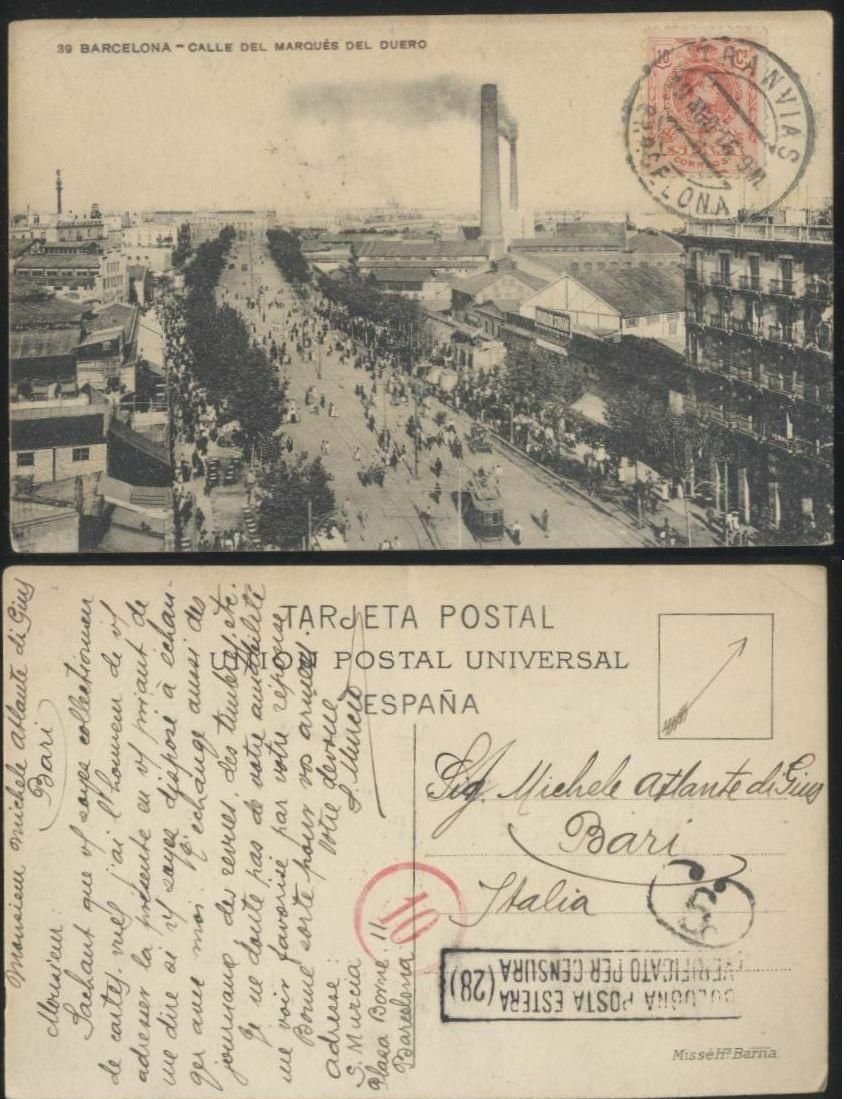 39 BARCELONA - CALLE DEL MARQUÉS DEL DUERO
10 Cs
CORREOS
TRANVIAS
BARCELONA
TARJETA POSTAL
UNION POSTAL UNIVERSAL
ESPAÑA
Monsieur Michele Atlante di Gius
Bari
Monsieur
Sachant que vs soyez collectionneur
de cartes vues j'ai l'honneur de vs
adresser la présente en vs priant de
me dire si vs soyez disposé à échan-
ger avec moi. J'échange aussi des
journaux, des revues, des timbres, etc.
Je ne doute pas de votre amabilité
me voir favorisé par votre réponse
Bonne sorte pour vos armées.
Votre dévoué
S. Murcia
adresse:
S. Murcia
Plasa Borne. 11
Barcelona
Sig. Michele Atlante di Gius
Bari
Italia
10
BOLOGNA POSTA ESTERA
VERIFICATO PER CENSURA
(28)
Missé Hs Barna.